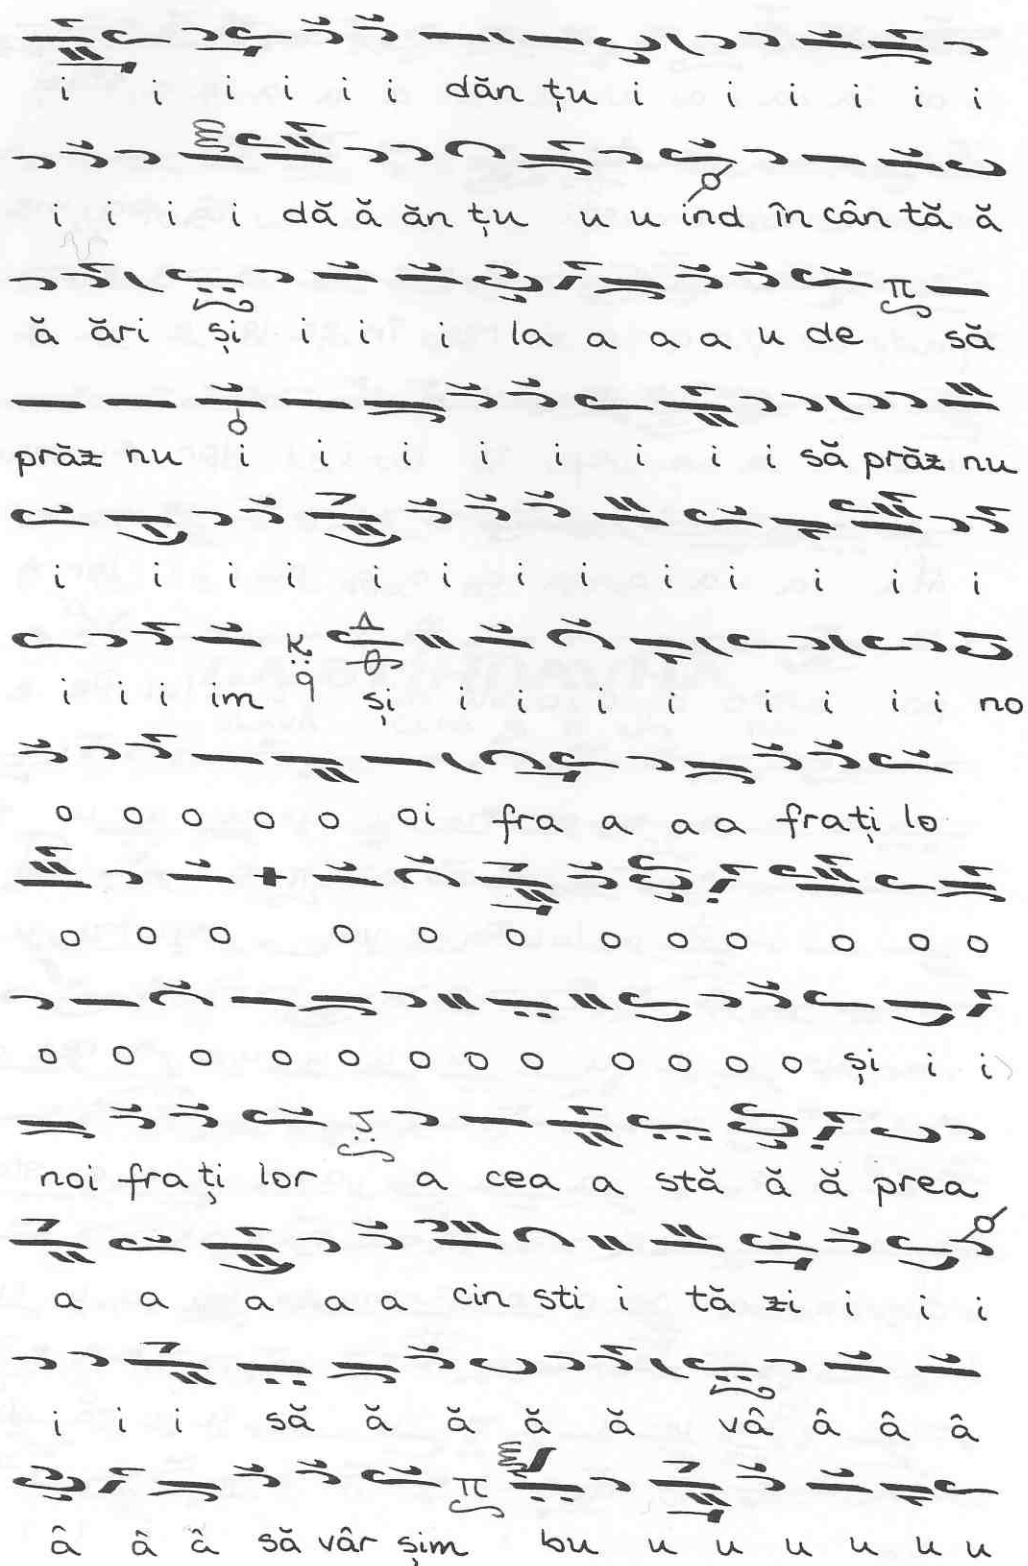 i i i i i i dăn țu i i i i i i
i i i i dă ă ăn țu u u ind în cân tă ă
ă ări și i i i la a a a u de să
prăz nu i i i i i i i să prăz nu
i i i i i i i i i i i i i
i i i im și i i i i i i i no
o o o o o oi fra a a a frați lo
o o o o o o o o o o o o
o o o o o o o o o o o și i i
noi frați lor a cea a stă ă ă prea
a a a a a cin sti i tă zi i i i
i i i să ă ă ă ă vâ â â â
â â â să vâr șim bu u u u u u u